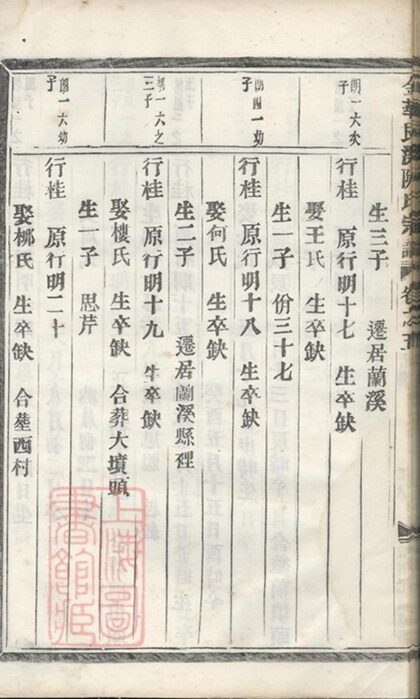 生三子 遷居蘭溪
朗一六次子
行桂 原行明十七 生卒缺
娶王氏 生卒缺
生一子 份三十七
朗四一幼子
行桂 原行明十八 生卒缺
娶何氏 生卒缺
生二子 遷居蘭溪縣裡
朗一六之三子
行桂 原行明十九 生卒缺
娶樓氏 生卒缺 合葬大墳頭
生一子 思芹
朗一六幼子
行桂 原行明二十
娶柳氏 生卒缺 合塟西村
上海圖書館